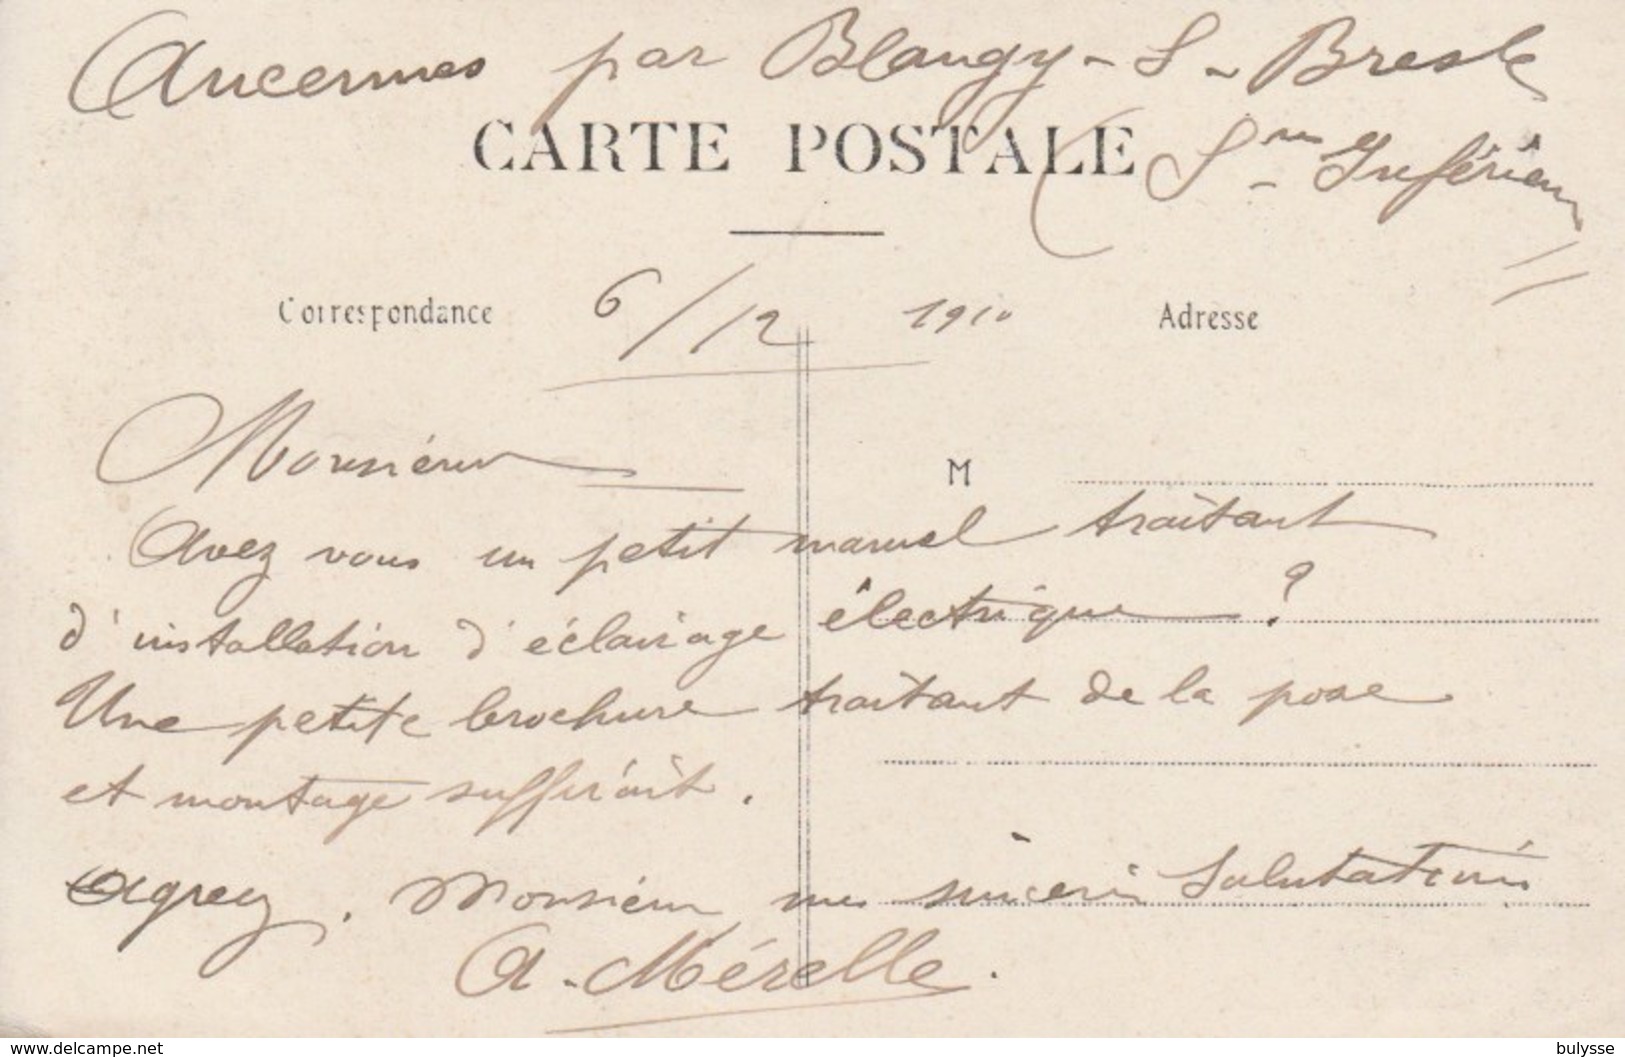 Aucennes par Blangy-S-Bresle
CARTE POSTALE
Sne Inférieure
Correspondance
6/12 1910
Adresse
Monsieur
M
Avez vous un petit manuel traitant
d'installation d'éclairage électrique ?
Une petite brochure traitant de la pose
et montage suffirait.
Agréez, Monsieur, mes sincères Salutations
A. Mérelle.
www.delcampe.net
bulysse